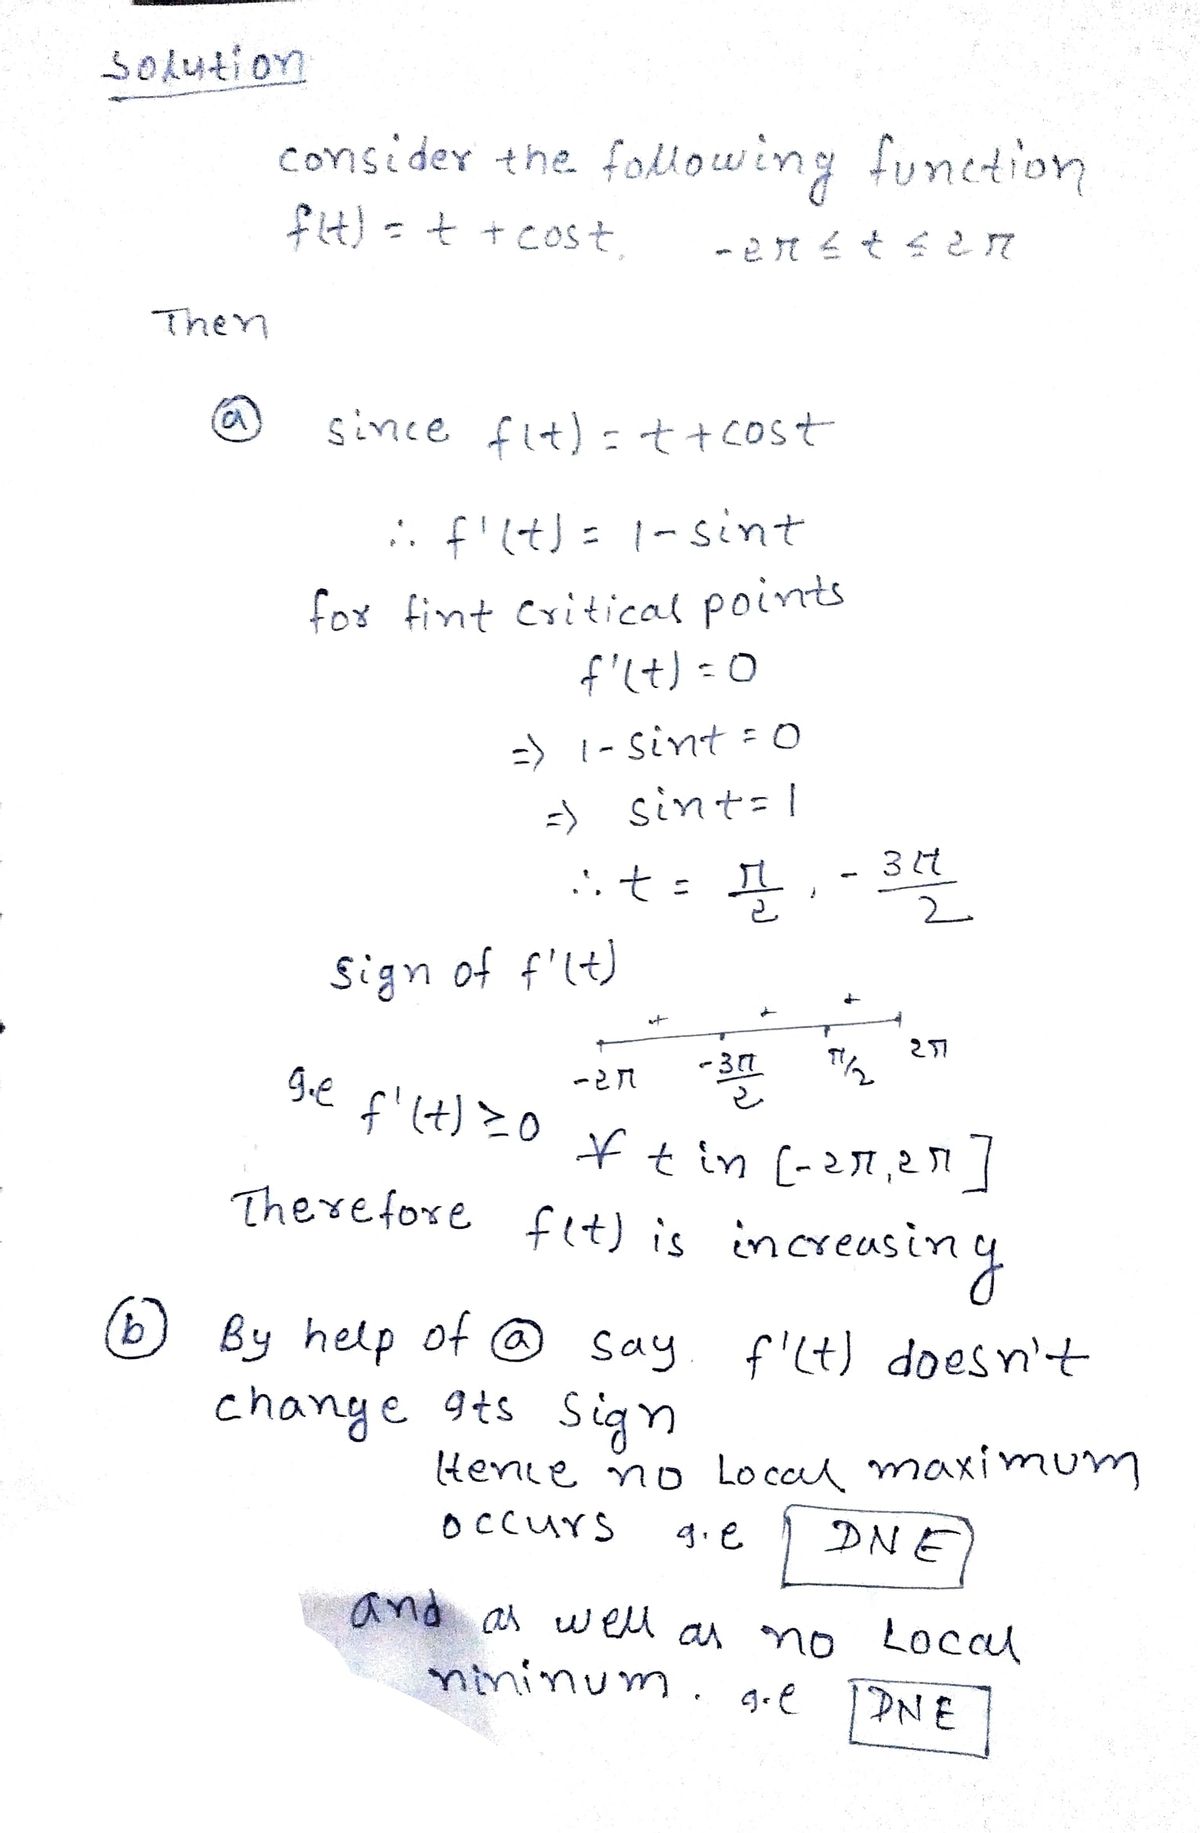 Solution
consider the following function
f(t) = t + cost, -2π ≤ t ≤ 2π
Then
ⓐ since f(t) = t + cost
∴ f'(t) = 1 - sint
for fint critical points
f'(t) = 0
=> 1 - sint = 0
=> sint = 1
∴ t = π/2, - 3π/2
Sign of f'(t)
+ + +
-2π -3π/2 π/2 2π
g.e f'(t) ≥ 0 ∀ t in [-2π, 2π]
Therefore f(t) is increasing
ⓑ By help of ⓐ say f'(t) doesn't
change gts sign
Hence no Local maximum
occurs g.e DNE
and as well as no Local
nininum. g.e DNE